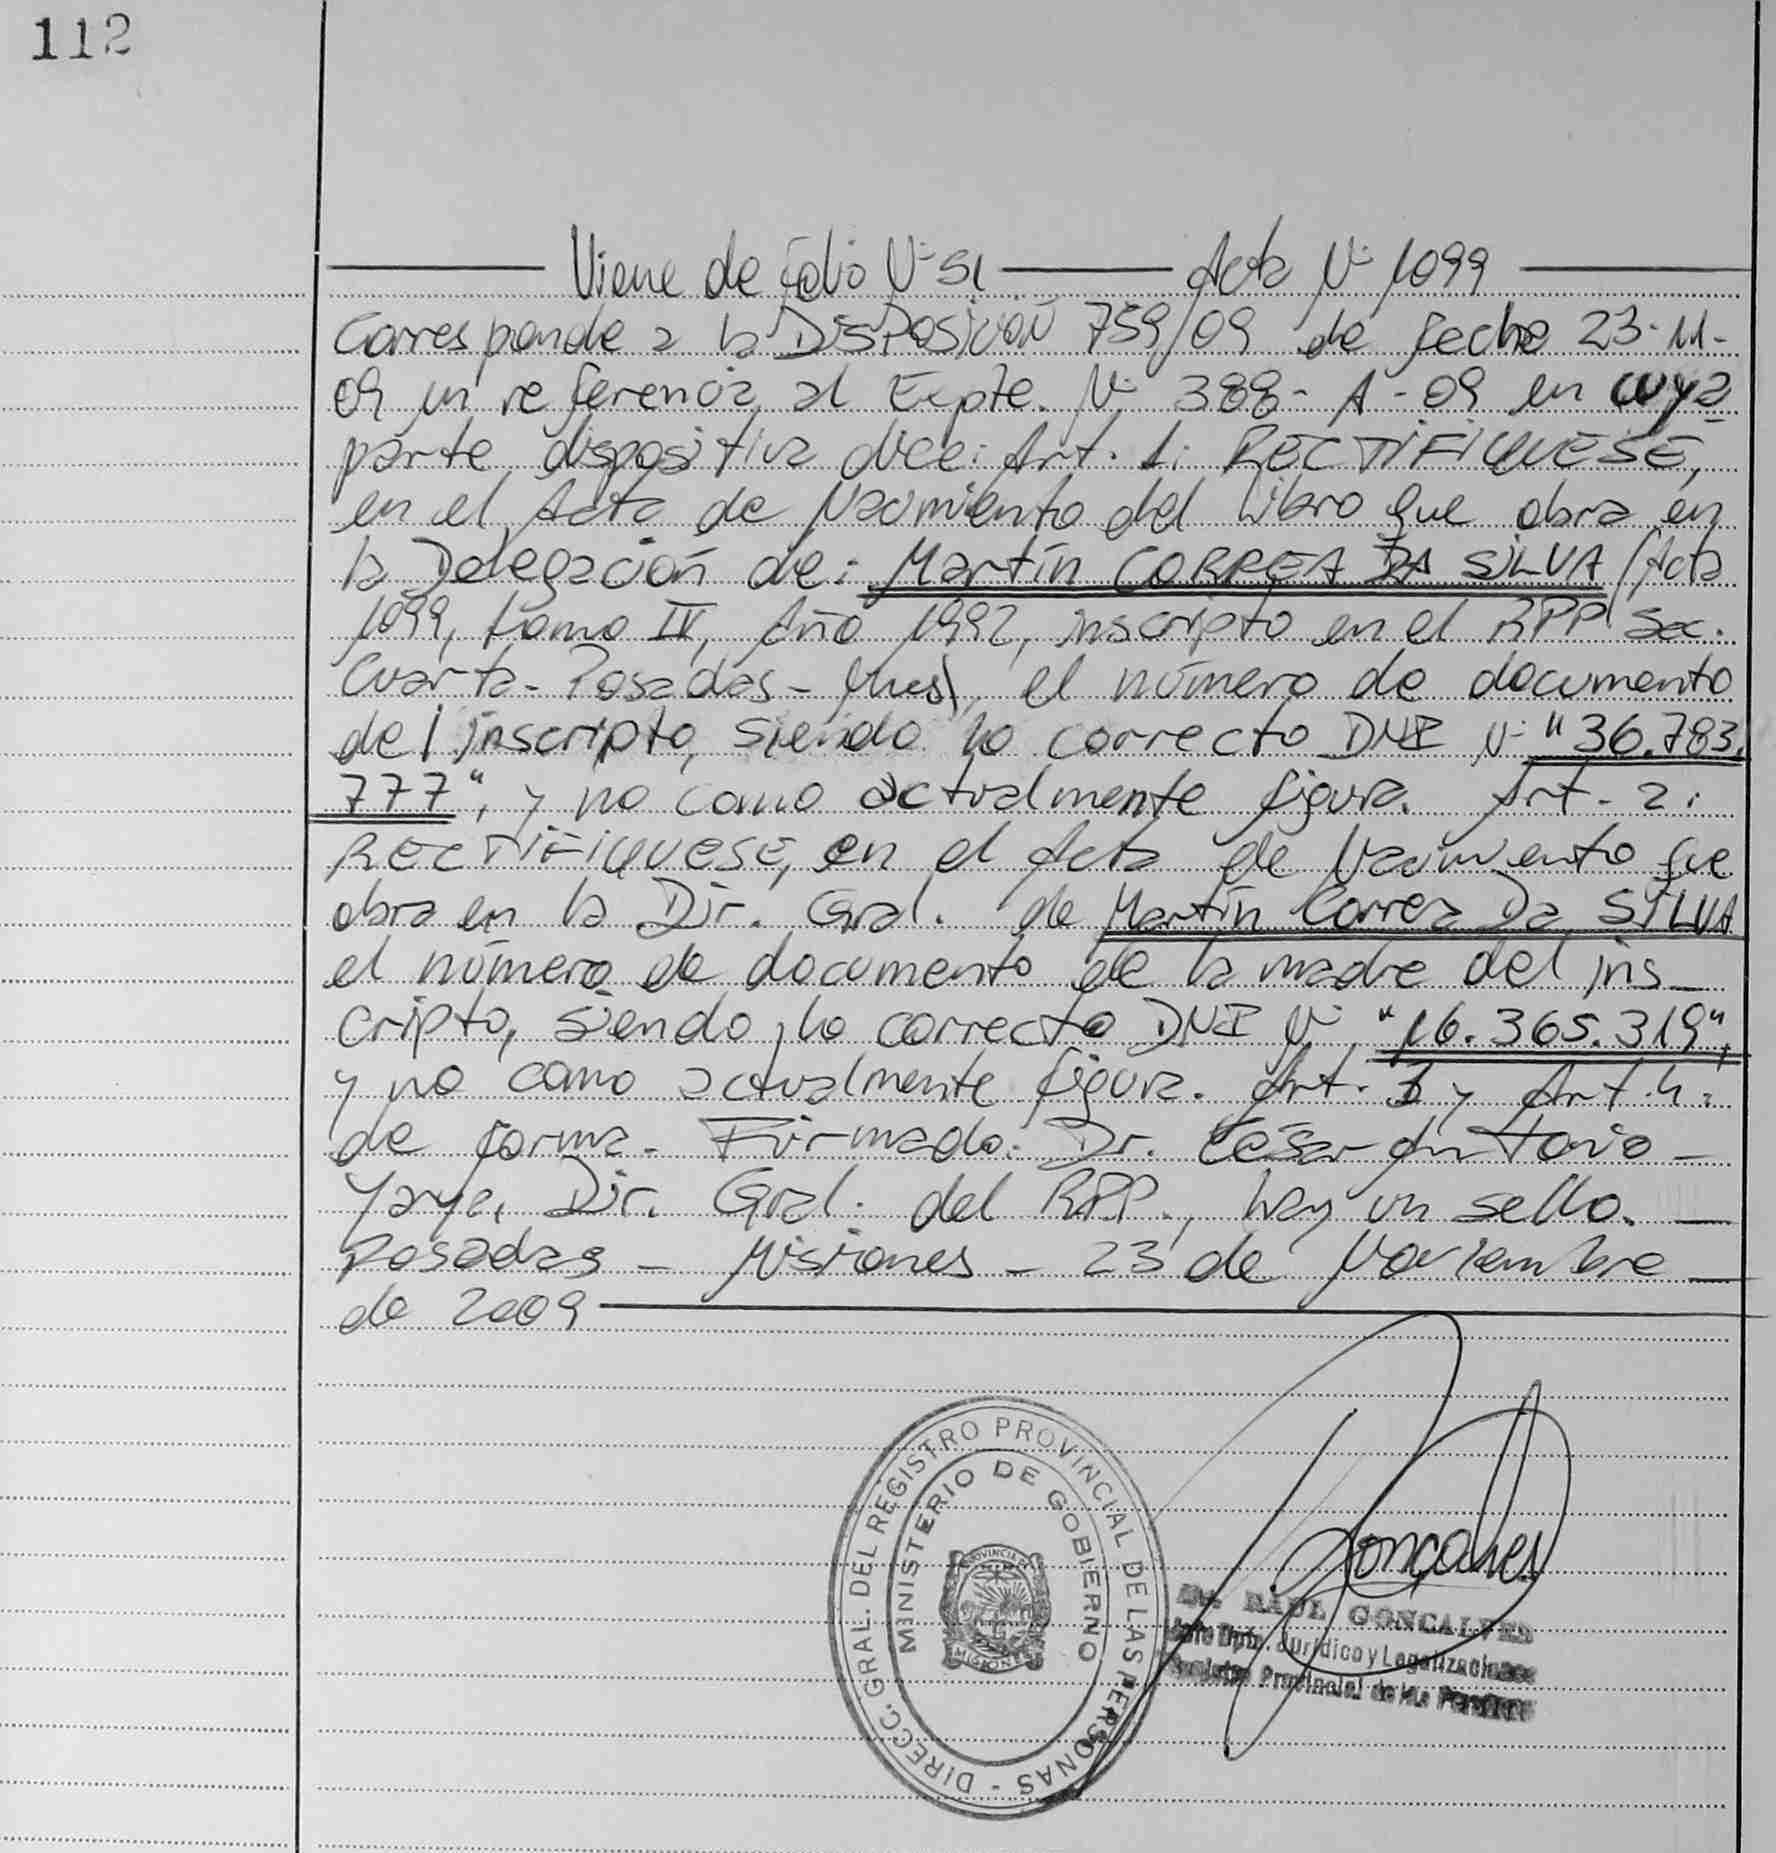 112
Viene de Folio N° 51 Acta N° 1099
Corresponde a la DISPOSICIÓN 759/09 de fecha 23-11-
09 en referencia al Expte. N° 388- A -09 en cuya
parte dispositiva dice: Art. 1: RECTIFIQUESE,
en el Acta de Nacimiento del Libro que obra en
la Delegación de: Martín CORREA DA SILVA (Acta
1099, tomo IV, Año 1992, inscripto en el RPP Sec.
Cuarta- Posadas- Mnes), el número de documento
del inscripto, siendo lo correcto DNI N° "36.783.
777", y no como actualmente figura. Art. 2:
RECTIFIQUESE, en el Acta de Nacimiento que
obra en la Dir. Gral. de Martín Correa Da SILVA
el número de documento de la madre del ins-
cripto, siendo lo correcto DNI N° "16.365.319",
y no como actualmente figura. Art. 3 y Art. 4:
de forma. Firmado: Dr. César Antonio -
Yaya, Dir. Gral. del RPP., hay un sello. -
Posadas - Misiones - 23 de Noviembre -
de 2009
DIRECC. GRAL. DEL REGISTRO PROVINCIAL DE LAS PERSONAS -
MINISTERIO DE GOBIERNO
PROVINCIA DE
MISIONES
Goncalves
RAUL GONCALVES
Jefe Dpto. Jurídico y Legalizaciones
Registro Provincial de las Personas